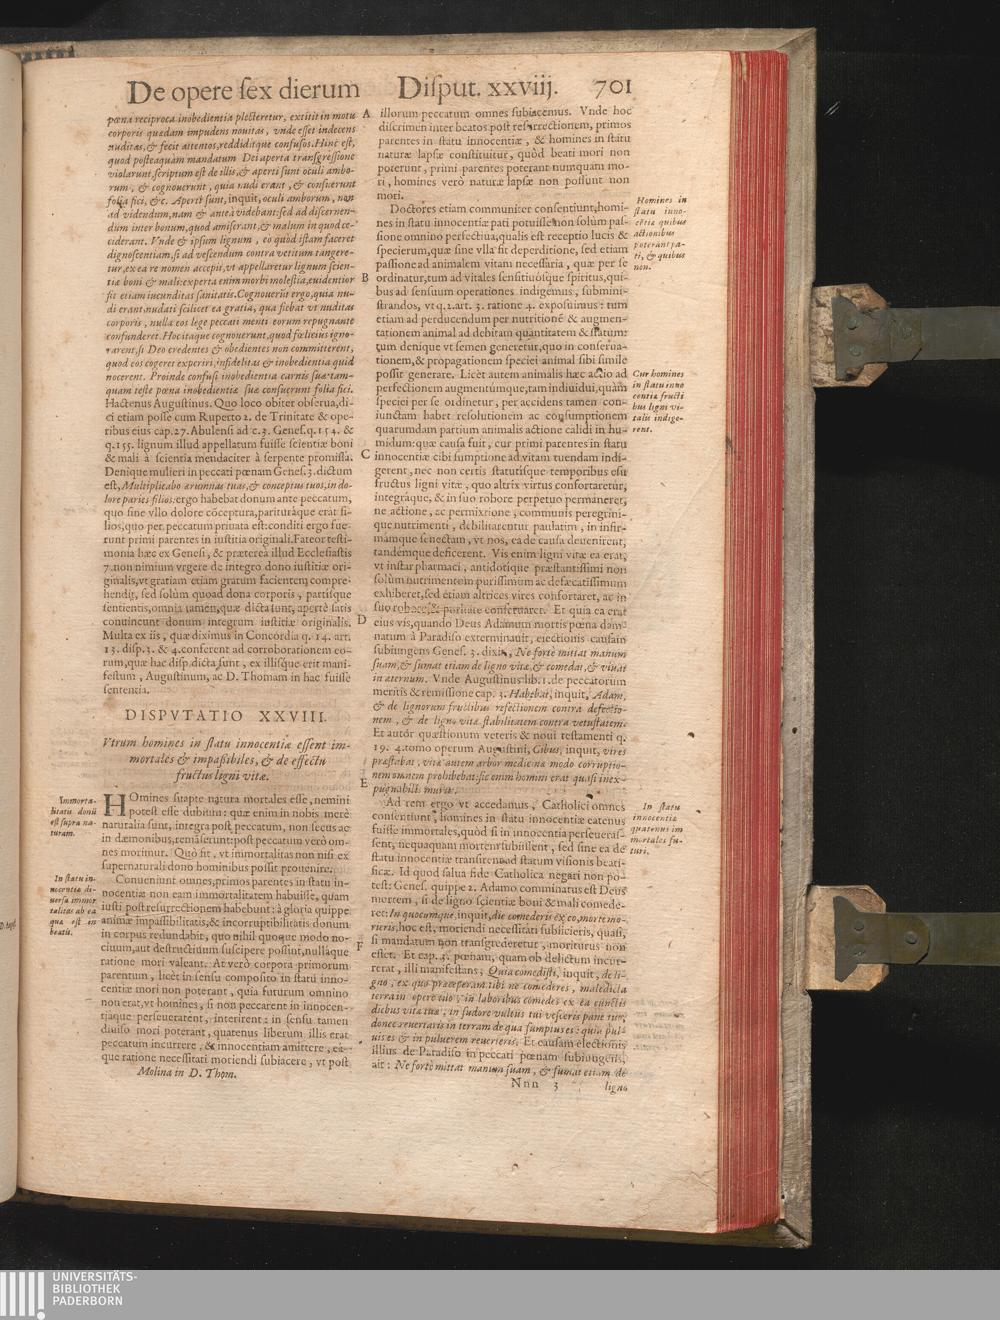 De opere sex dierum Disput. xxviij. 701
pœna reciproca inobedientia plecteretur, extitit in motu
corporis quædam impudens nouitas, vnde esset indecens
nuditas, & fecit attentos, reddiditque confusos. Hinc est,
quod posteaquàm mandatum Dei aperta transgressione
violarunt, scriptum est de illis, & aperti sunt oculi ambo-
rum, & cognouerunt, quia nudi erant, & consuerunt
folia fici, &c. Aperti sunt, inquit, oculi amborum, non
ad videndum, nam & anteà videbant: sed ad discernen-
dum inter bonum, quod amiserant, & malum in quod ce-
ciderant. Vnde & ipsum lignum, eo quòd istam faceret
dignoscentiam, si ad vescendum contra vetitum tangere-
tur, ex ea re nomen accepit, vt appellaretur lignum scien-
tiæ boni & mali: experta enim morbi molestia, euidentior
fit etiam iucunditas sanitatis. Cognouerūt ergo, quia nu-
di erant, nudati scilicet ea gratia, qua fiebat vt nuditas
corporis, nulla eos lege peccati menti eorum repugnante
confunderet. Hoc itaque cognouerunt, quod fœlicius igno-
rarent, si Deo credentes & obedientes non committerent,
quod eos cogeret experiri, infidelitas & inobedientia quid
nocerent. Proinde confusi inobedientia carnis suæ tam-
quam teste pœna inobedientiæ suæ consuerunt folia fici.
Hactenus Augustinus. Quo loco obiter obserua, di-
ci etiam posse cum Ruperto 2. de Trinitate & ope-
ribus eius cap. 27. Abulensi ad c. 3. Genes. q. 154. &
q. 155. lignum illud appellatum fuisse scientiæ boni
& mali à scientia mendaciter à serpente promissa.
Denique mulieri in peccati pœnam Genes. 3. dictum
est, Multiplicabo ærumnas tuas, & conceptus tuos, in do-
lore paries filios. ergo habebat donum ante peccatum,
quo sine vllo dolore cōceptura, parituráque erat fi-
lios, quo per peccatum priuata est: conditi ergo fue-
runt primi parentes in iustitia originali. Fateor testi-
monia hæc ex Genesi, & præterea illud Ecclesiastis
7. non nimium vrgere de integro dono iustitiæ ori-
ginalis, vt gratiam etiam gratum facientem compre-
hendit, sed solùm quoad dona corporis, partisque
sentientis, omnia tamen, quæ dicta sunt, apertè satis
conuincunt donum integrum iustitiæ originalis.
Multa ex iis, quæ diximus in Concordia q. 14. art.
13. disp. 3. & 4. conferent ad corroborationem eo-
rum, quæ hac disp. dicta sunt, ex illisque erit mani-
festum, Augustinum, ac D. Thomam in hac fuisse
sententia.
DISPVTATIO XXVIII.
Vtrum homines in statu innocentiæ essent im-
mortales & impassibiles, & de effectu
fructus ligni vitæ.
Immorta-
litatis donū
est supra na-
turam.
HOmines suapte natura mortales esse, nemini
potest esse dubium: quæ enim in nobis merè
naturalia sunt, integra post peccatum, non secus ac
in dæmonibus, remāserunt: post peccatum verò om-
nes morimur. Quò fit, vt immortalitas non nisi ex
supernaturali dono hominibus possit prouenire.
In statu in-
nocentiæ di-
uersa immor
talitas ab ea
quæ est in
beatis.
Conueniunt omnes, primos parentes in statu in-
nocentiæ non eam immortalitatem habuisse, quam
iusti post resurrectionem habebunt: à gloria quippe
animæ impassibilitatis, & incorruptibilitatis donum
in corpus redundabit, quo nihil quoque modo no-
ciuum, aut destructiuum suscipere possint, nulláque
ratione mori valeant. At verò corpora primorum
parentum, licèt in sensu composito in statu inno-
centiæ mori non poterant, quia futurum omnino
non erat, vt homines, si non peccarent in innocen-
tiáque perseuerarent, interirent: in sensu tamen
diuiso mori poterant, quatenus liberum illis erat
peccatum incurrere, & innocentiam amittere, ea-
que ratione necessitati moriendi subiacere, vt post
Molina in D. Thom.
A
B
C
D
E
F
illorum peccatum omnes subiacemus. Vnde hoc
discrimen inter beatos post resurrectionem, primos
parentes in statu innocentiæ, & homines in statu
naturæ lapsæ constituitur, quòd beati mori non
poterunt, primi parentes poterant numquam mo-
ri, homines verò naturæ lapsæ non possunt non
mori.
Homines in
statu inno-
cētiæ quibus
actionibus
poterant pa-
ti, & quibus
non.
Doctores etiam communiter consentiunt, homi-
nes in statu innocentiæ pati potuisse non solùm pas-
sione omnino perfectiua, qualis est receptio lucis &
specierum, quæ sine vlla fit deperditione, sed etiam
passione ad animalem vitam necessaria, quæ per se
ordinatur, tum ad vitales sensitiuósque spiritus, qui-
bus ad sensuum operationes indigemus, submini-
strandos, vt q. 2. art. 3. ratione 4. exposuimus: tum
etiam ad perducendum per nutritionē & augmen-
tationem animal ad debitam quantitatem & statum:
tum denique vt semen generetur, quo in conserua-
tionem, & propagationem speciei animal sibi simile
possit generare. Licèt autem animalis hæc actio ad
perfectionem augmentúmque, tam indiuidui, quàm
speciei per se ordinetur, per accidens tamen con-
iunctam habet resolutionem ac consumptionem
quarumdam partium animalis actione calidi in hu-
midum: quæ causa fuit, cur primi parentes in statu
innocentiæ cibi sumptione ad vitam tuendam indi-
gerent, nec non certis statutísque temporibus esu
fructus ligni vitæ, quo altrix virtus confortaretur,
integráque, & in suo robore perpetuo permaneret,
ne actione, ac permixtione, communis peregrini-
que nutrimenti, debilitarentur paulatim, in infir-
mámque senectam, vt nos, ea de causa deuenirent,
tandémque deficerent. Vis enim ligni vitæ ea erat,
vt instar pharmaci, antidotique præstantissimi non
solùm nutrimentum purissimum ac defæcatissimum
exhiberet, sed etiam altrices vires confortaret, ac in
suo robore, & puritate conseruaret. Et quia ea erat
eius vis, quando Deus Adamum mortis pœna dam-
natum à Paradiso exterminauit, eiectionis causam
subiungens Genes. 3. dixit, Ne fortè mittat manum
suam, & sumat etiam de ligno vitæ, & comedat, & viuat
in æternum. Vnde Augustinus lib. 1. de peccatorum
meritis & remissione cap. 3. Habebat, inquit, Adam,
& de lignorum fructibus refectionem contra defectio-
nem, & de ligno vitæ stabilitatem contra vetustatem.
Et autor quæstionum veteris & noui testamenti q.
19. 4. tomo operum Augustini, Cibus, inquit, vires
præstabat, vitæ autem arbor medicinæ modo corruptio-
nem omnem prohibebat: sic enim homini erat quasi inex-
pugnabilis murus.
Cur homines
in statu inno
centiæ fructi
bus ligni vi-
tæ indige-
rent.
Ad rem ergo vt accedamus, Catholici omnes
consentiunt, homines in statu innocentiæ eatenus
fuisse immortales, quòd si in innocentia perseueras-
sent, nequaquam mortem subiissent, sed sine ea de
statu innocentiæ transirent ad statum visionis beati-
ficæ. Id quod salua fide Catholica negari non po-
test: Genes. quippe 2. Adamo comminatus est Deus
mortem, si de ligno scientiæ boni & mali comede-
ret: In quocumque, inquit, die comederis ex eo, morte mo-
rieris, hoc est, moriendi necessitati subiicieris, quasi,
si mandatum non transgrederetur, moriturus non
esset. Et cap. 3. pœnam, quam ob delictum incur-
rerat, illi manifestans, Quia comedisti, inquit, de li-
gno, ex quo præceperam tibi ne comederes, maledicta
terra in opere tuo, in laboribus comedes ex ea cunctis
diebus vitæ tuæ, in sudore vultus tui vesceris pane tuo,
donec reuertaris in terram de qua sumptus es: quia pul-
uis es & in puluerem reuerteris. Et causam eiectionis
illius de Paradiso in peccati pœnam subiungens,
ait: Ne fortè mittat manum suam, & sumat etiam de
In statu
innocentiæ
quatenus im
mortales fu-
turi.
Nnn 3 ligno
UNIVERSITÄTS-
BIBLIOTHEK
PADERBORN